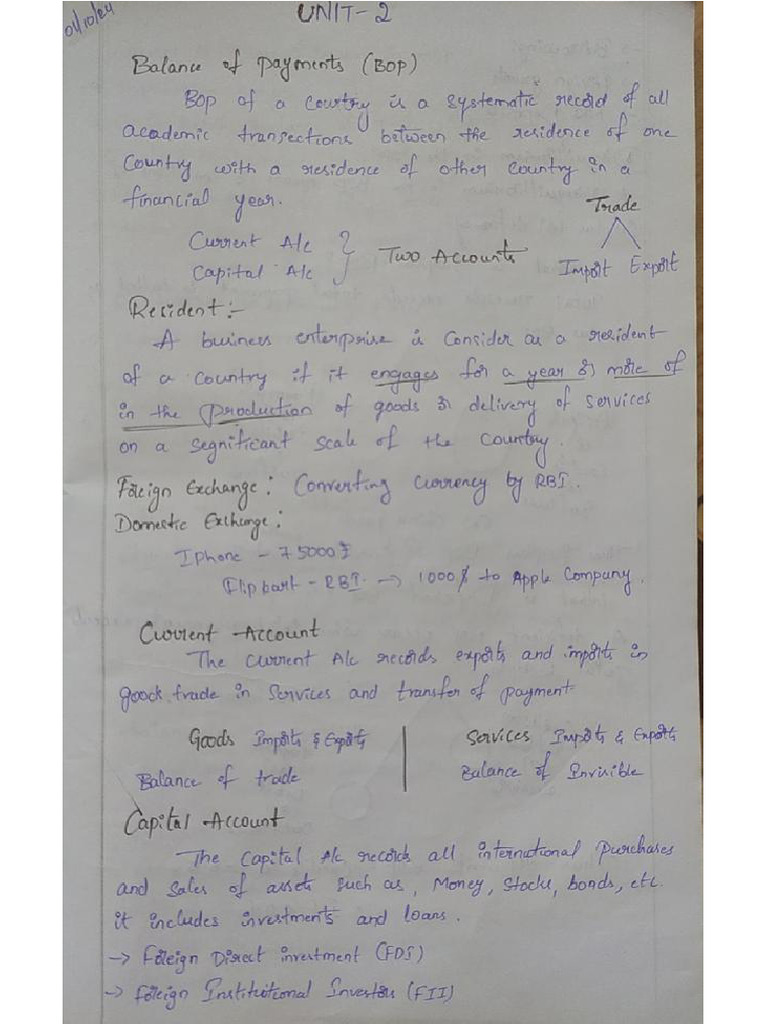 01/10/24
UNIT-2
Balance of payments (BOP)
BOP of a country is a systematic record of all
academic transections between the residence of one
Country with a residence of other Country in a
financial year.
Trade
Current A/c
Capital A/c } Two Accounts
Import Export
Resident:-
A business enterprise is Consider as a resident
of a Country if it engages for a year or more of
in the production of goods or delivery of services
on a segnificant scale of the Country.
Foreign Exchange: Converting Currency by RBI.
Domestic Exchange:
Iphone - 75000₹
Flipkart - RBI -> 1000$ to Apple Company.
Current Account
The current A/c records exports and imports in
goods, trade in Services and transfer of payment
Goods Imports & Exports | Services Imports & Exports
Balance of trade | Balance of Invisible
Capital Account
The Capital A/c records all international purchases
and Sales of assets such as, Money, Stocks, bonds, etc.
it includes investments and loans.
-> Foreign Direct investment (FDI)
-> Foreign Institutional Investors (FII)